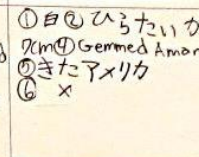 ①白②ひらたいか
7cm④Gemmed Aman
⑤きたアメリカ
⑥ ×